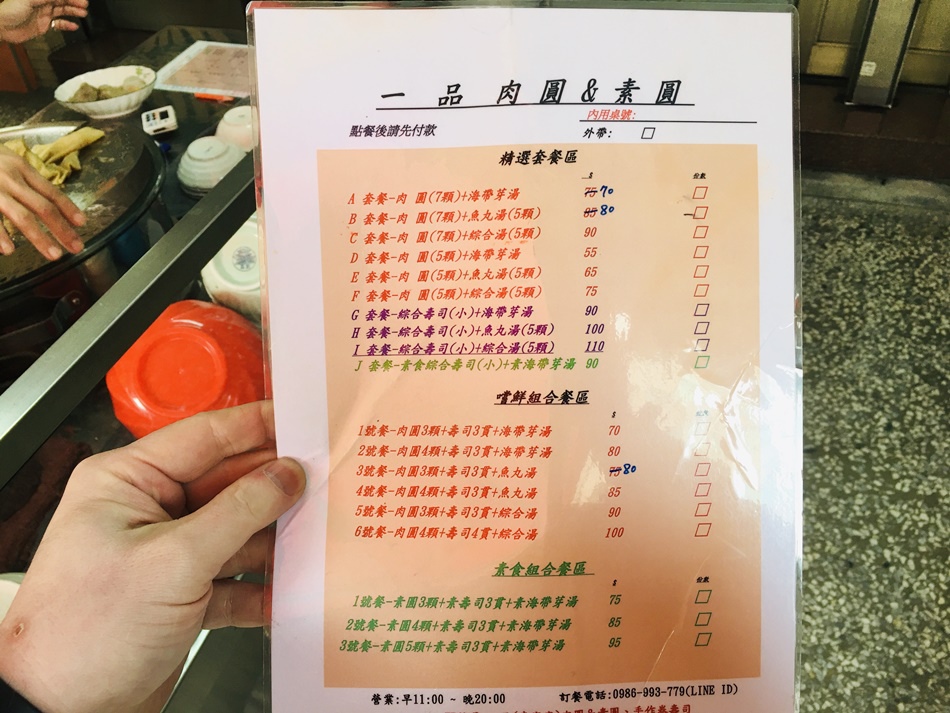 一品 肉圓&素圓
內用桌號:
點餐後請先付款
外帶: □
精選套餐區
$ 份數
A 套餐-肉 圓(7顆)+海帶芽湯 75 70 □
B 套餐-肉 圓(7顆)+魚丸湯(5顆) 85 80 □
C 套餐-肉 圓(7顆)+綜合湯(5顆) 90 □
D 套餐-肉 圓(5顆)+海帶芽湯 55 □
E 套餐-肉 圓(5顆)+魚丸湯(5顆) 65 □
F 套餐-肉 圓(5顆)+綜合湯(5顆) 75 □
G 套餐-綜合壽司(小)+海帶芽湯 90 □
H 套餐-綜合壽司(小)+魚丸湯(5顆) 100 □
I 套餐-綜合壽司(小)+綜合湯(5顆) 110 □
J 套餐-素食綜合壽司(小)+素海帶芽湯 90 □
嚐鮮組合餐區
$ 份數
1號餐-肉圓3顆+壽司3貫+海帶芽湯 70 □
2號餐-肉圓4顆+壽司3貫+海帶芽湯 80 □
3號餐-肉圓3顆+壽司3貫+魚丸湯 75 80 □
4號餐-肉圓4顆+壽司3貫+魚丸湯 85 □
5號餐-肉圓3顆+壽司3貫+綜合湯 90 □
6號餐-肉圓4顆+壽司4貫+綜合湯 100 □
素食組合餐區
$ 份數
1號餐-素圓3顆+素壽司3貫+素海帶芽湯 75 □
2號餐-素圓4顆+素壽司3貫+素海帶芽湯 85 □
3號餐-素圓5顆+素壽司3貫+素海帶芽湯 95 □
營業:早11:00 ~ 晚20:00 訂餐電話:0986-993-779(LINE ID)
肉圓&素圓、手作卷壽司